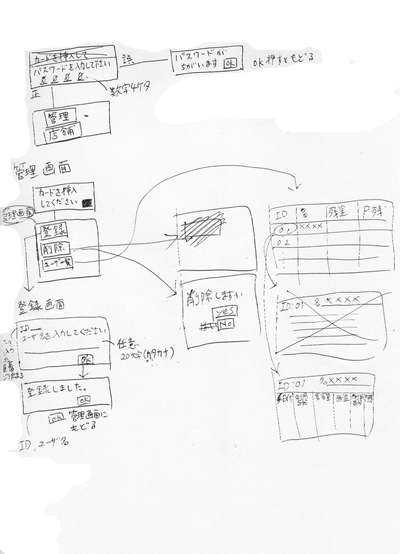 カードを挿入して
パスワードを入力して下さい
誤
パスワードが
ちがいます OK
OK押すともどる
正
数字4ケタ
管理
店舗
管理画面
カードを挿入
してください
管理画面
登録
削除
ユーザ一覧
ID 名 残金 P残
01 ××××
02
削除しますか
yes
No
ID:01 名××××
登録画面
ID
ユーザ名を入力してください
OK
任意
20文字(カタカナ)
登録しました。
OK
OK 管理画面に
もどる
ID,ユーザ名
ID:01 名××××